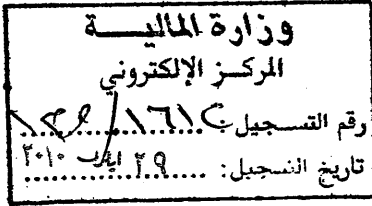 وزارة المالية
المركز الإلكتروني
رقم التسجيل
تاريخ التسجيل: ٢٩ ٢٠١٠